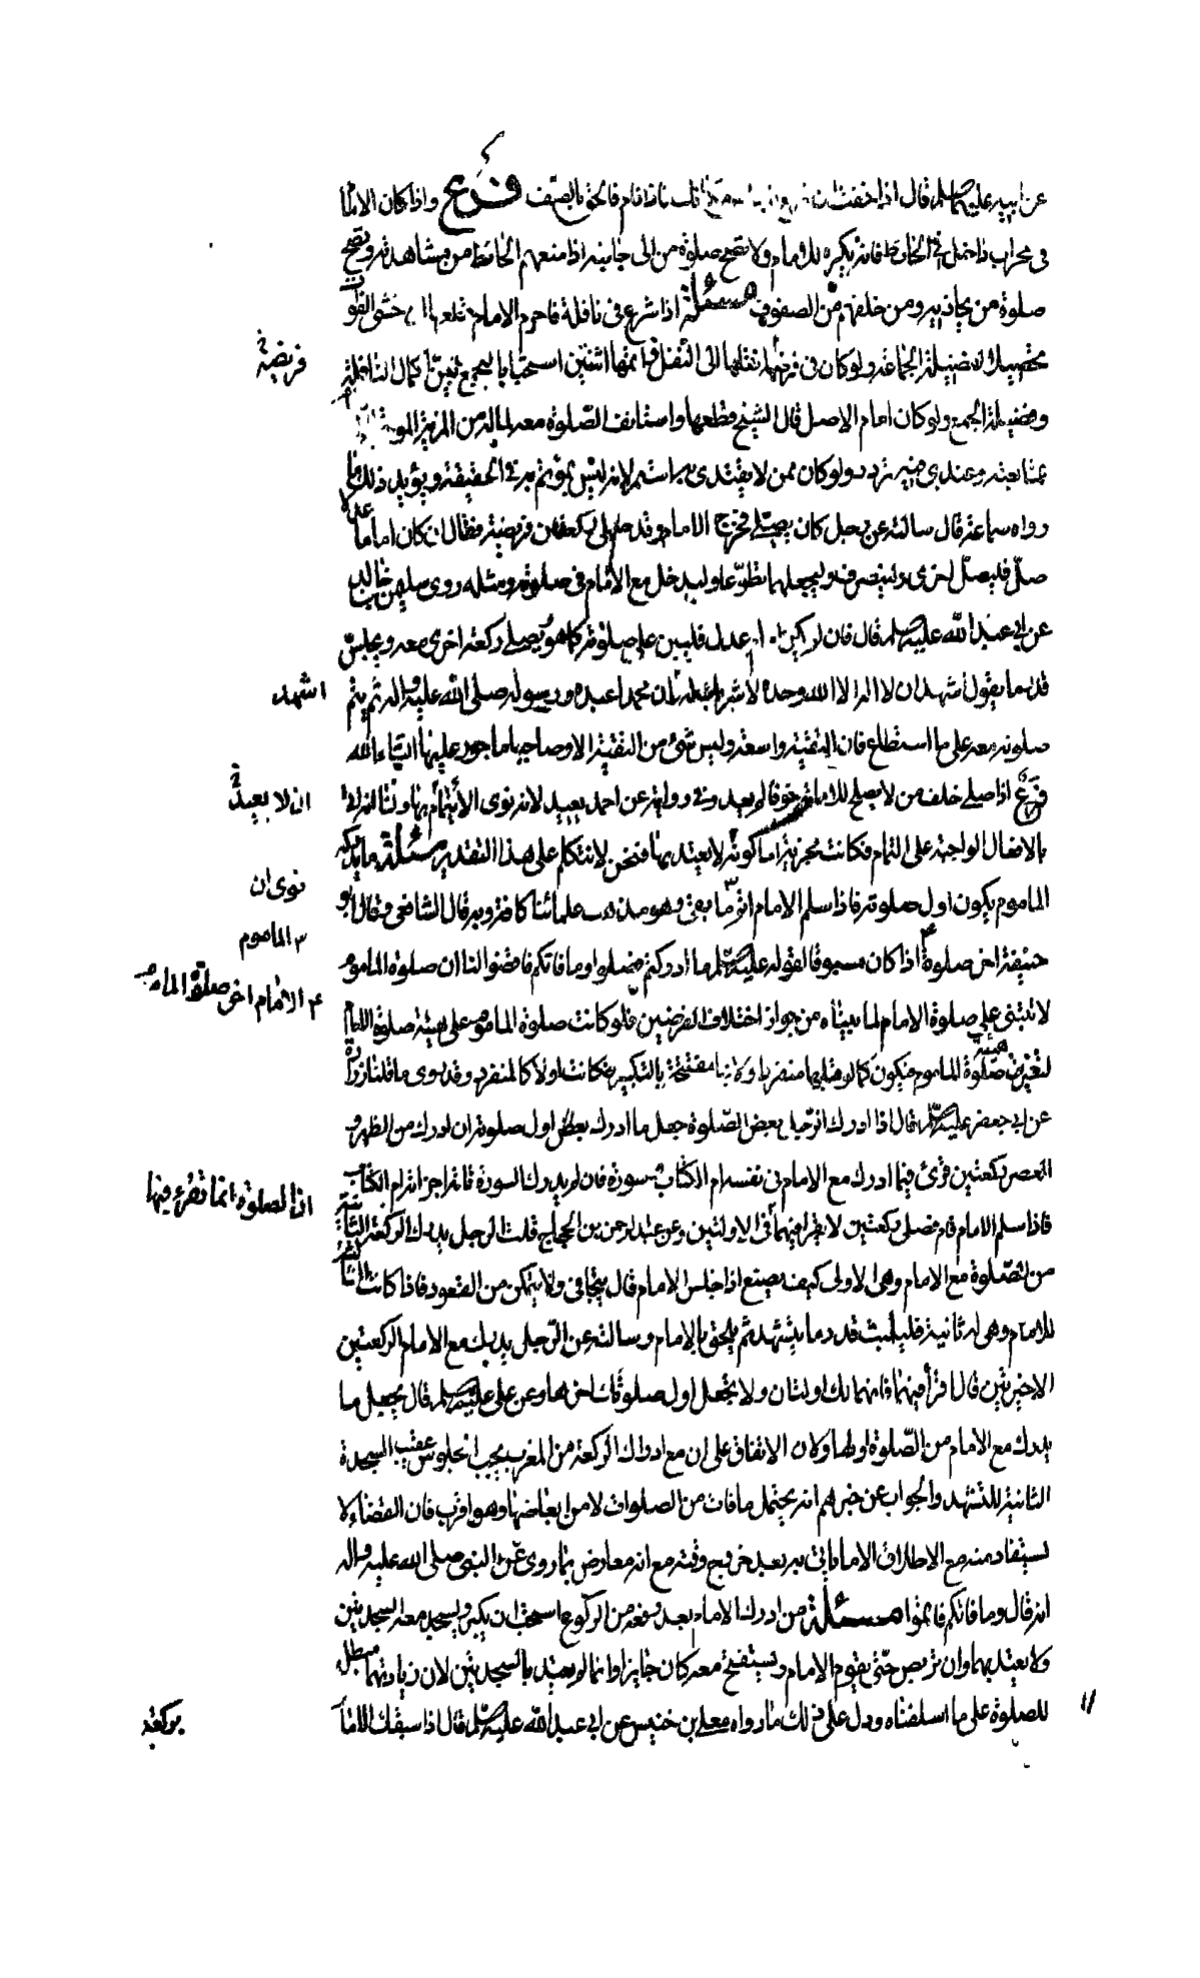 عن ابيه عليهما السلم قال اذا خفت ان فاذا قام فالحق بالصف فرع واذا كان الامام
في محراب داخل في الحائط فانه يكره للامام ولا تصح صلوة من الى جانبه اذا منعهم الحائط من مشاهدته ويصح
صلوة من يحاذيه ومن خلفهم من الصفوف مسئلة اذا شرع في نافلة فاحرم الامام قطعها ان خشى الفوات
تحصيلا لفضيلة الجماعة ولو كان في فريضة نقلها الى النفل واتمها اثنتين استحبابا ليجمع بين اكمال النافلة
فريضة
وفضيلة الجمع ولو كان امام الاصل قال الشيخ قطعها واستانف الصلوة معه لما له من المزية
بمتابعته وعندي فيه تردد ولو كان ممن لا يقتدى به استمر لانه ليس بمؤتم به في الحقيقة ويؤيد ذلك ما
رواه سماعة قال سالته عن رجل كان يصلي فخرج الامام وقد صلى ركعة من فريضة فقال ان كان اماما عدلا
صلى فليصل اخرى ولينصرف وليجعلها تطوعا وليدخل مع الامام في صلوته ومثله روى سليمن بن خالد
عن ابي عبد الله عليه السلم قال فان لم يكن امام عدل فليبن على صلوته كما هو يصلي ركعة اخرى معه ويجلس
قدر ما يقول اشهد ان لا اله الا الله وحده لا شريك له وان محمدا عبده ورسوله صلى الله عليه واله ثم يتم
اشهد
صلوته معه على ما استطاع فان التقية واسعة وليس شيء من التقية الا وصاحبها ماجور عليها ان شاء الله
فرع اذا صلى خلف من لا يصلح للامامة نحو قال يعيد وفي رواية عن احمد يعيد لانه نوى الائتمام بها ولنا انه اتى
ان لا يعيد
بالافعال الواجبة على التمام فكانت مجزية اما كونه لا يعتد بها فنحن لا نتكلم على هذا التقدير مسئلة ما يدركه
نوى ان
الماموم يكون اول صلوته فاذا سلم الامام اتم ما بقى وهو مذهب علمائنا كافة وبه قال الشافعي وقال ابو
الماموم
حنيفة اخر صلوة اذا كان مسبوقا لقوله عليه السلم ما ادركتم فصلوا وما فاتكم فاقضوا لنا ان صلوة الماموم
الامام اخر صلوة الماموم
لا تبتنى على صلوة الامام لما بيناه من جواز اختلاف الفرضين فلو كانت صلوة الماموم على هيئة صلوة الامام
لتغيرت هيئة صلوة الماموم فيكون كما لو صليها منفردا ولانها مفتتحة بالتكبير فكانت اولا كالمنفرد وقد روى ما قلنا زرارة
عن ابي جعفر عليه السلم قال اذا ادرك الرجل بعض الصلوة جعل ما ادرك اول صلوته ان ادرك من الظهر او
العصر ركعتين قرئ فيما ادرك مع الامام في نفسه ام الكتاب وسورة فان لم يدرك السورة تامة اجزاته ام الكتاب
اذ الصلوة انما تقرء فيها
فاذا سلم الامام قام فصلى ركعتين لا يقرا فيهما في الاولتين وعن عبد الرحمن بن الحجاج قلت الرجل يدرك الركعة الثانية
من الصلوة مع الامام وهي له الاولى كيف يصنع اذا جلس الامام قال يتجافى ولا يتمكن من القعود فاذا كانت الثالثة
للامام وهي له ثانية فليلبث قدر ما يتشهد ثم يلحق بالامام وسالته عن الرجل يدرك مع الامام الركعتين
الاخيرتين قال اقرأ فيهما فانهما لك اولتان ولا تجعل اول صلوتك اخرها وعن علي عليه السلم قال يجعل ما
يدرك مع الامام من الصلوة اولها ولان الاتفاق على ان مع ادراك الركعة من المغرب يجب الجلوس عقيب السجدة
الثانية للتشهد والجواب عن خبرهم انه يحتمل ما فات من الصلوات لا من ابعاضها وهو اقرب فان القضاء لا
يستفاد منه مع الاطلاق الا ما ياتي به بعد خروج وقته مع انه معارض بما روى عن النبي صلى الله عليه واله
انه قال وما فاتكم فاتموا مسئلة من ادرك الامام بعد رفعه من الركوع استحب ان يكبر ويسجد معه السجدتين
ولا يعتد بهما وان تربص حتى يقوم الامام ويستفتح معه كان جايزا وانما لم يعتد بالسجدتين لان زيادتهما مبطلة
للصلوة على ما اسلفناه ودل على ذلك ما رواه معلى بن خنيس عن ابي عبد الله عليه السلم قال اذا سبقك الامام
بركعة